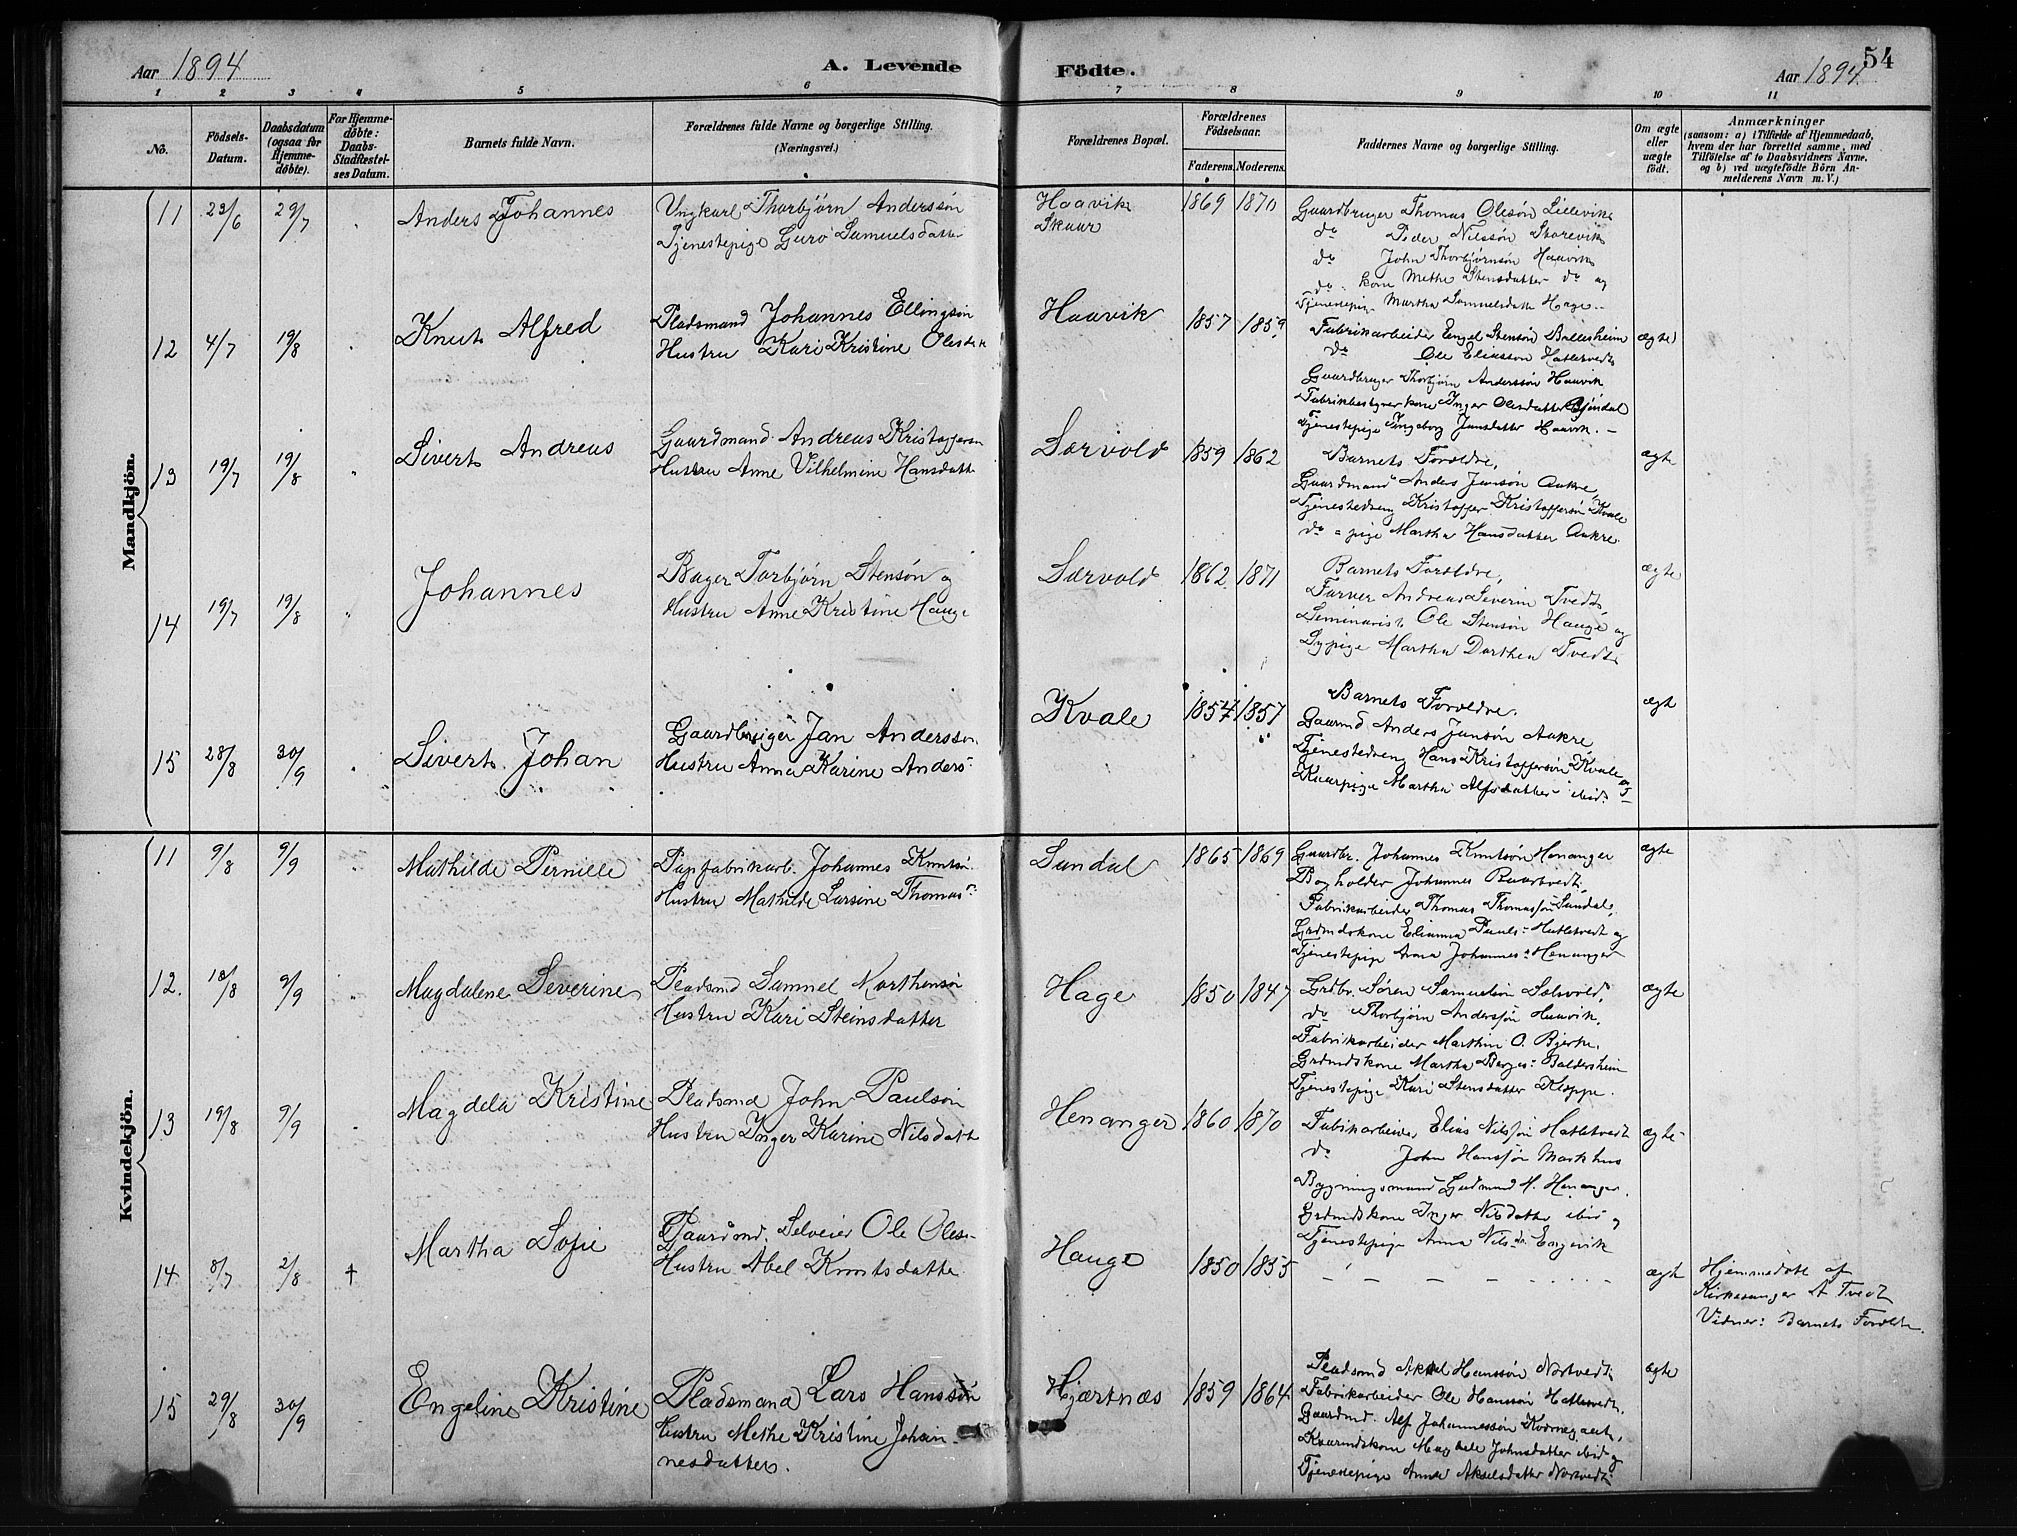 Aar 1894
A. Levende Födte.
Aar 1894.
54
1 2 3 4 5 6 7 8 9 10 11
No.
Födsels-Datum.
Daabsdatum (ogsaa for Hjemme-döbte).
For Hjemme-döbte: Daabs-Stadfæstel-ses Datum.
Barnets fulde Navn.
Forældrenes fulde Navne og borgerlige Stilling.
(Næringsvei.)
Forældrenes Bopæl.
Forældrenes Födselsaar.
Faderens. Moderens.
Faddernes Navne og borgerlige Stilling.
Om ægte eller uægte födt.
Anmærkninger
(saasom: a) i Tilfælde af Hjemmedaab, hvem der har forrettet samme, med Tilföielse af to Daabsvidners Navne, og b) ved uægtefödte Börn Anmelderens Navn m. V.)
Mandkjön.
11 23/6 29/7 Anders Johannes
Ungkarl Thorbjørn Anderssøn
Tjenestepige Guro Samuelsdatter
Haavik
Skaar
1869 1870
Gaardbruger Thomas Olesøn Lillevik
do Peder Nilssøn Storevik
do John Thorbjørnsøn Haavik
do kone Methe Stensdatter do og
Tjenestepig Martha Samuelsdatt Hage
12 4/7 19/8 Knut Alfred
Pladsmand Johannes Ellingsøn
Hustru Kari Kristine Olesdt
Haavik
1857 1859
Fabrikarbeider Engel Stensøn Ballesheim
do Ole Eliasson Hatletvedt
Gaardbruger Thorbjørn Anderssøn Haavik
Fabrikbestyrer kone Inger Olesdatter
Tjenestepige Ingeborg Jansdatter Haavik
ægte
13 19/7 19/8 Sivert Andreas
Gaardmand Andreas Kristoffersen
Hustru Anne Vilhelmine Hansdatte
Sørvold
1859 1862
Barnets Foreldre,
Gaardmand Anders Jansøn Aakre
Tjenestedreng Kristoffer Kristoffersøn Kvale
do pige Martha Hansdatter Aakre
ægte
14 19/7 19/8 Johannes
Bager Torbjørn Stensøn og
Hustru Anne Kristine Hauge
Sørvold
1862 1871
Barnets Foreldre,
Farver Andreas Severin Tvedt,
Seminarist Ole Stensøn Hauge og
Sypige Martha Dorthea Tvedt
ægte
15 28/8 30/9 Sivert Johan
Gaardbruger Jan Anderssøn
Hustru Anna Karine Anders
Kvale
1854 1857
Barnets Foreldre.
Gaarmd Anders Jansøn Aakre
Tjenestedreng Hans Kristoffersøn Kvale og
Kaarpige Martha Alfsdatter ibid.
ægt
Kvindekjön.
11 9/8 9/9 Mathilde Pernille
Papfabrikarb. Johannes Knutsøn
Hustru Mathilde Larsine Thomas
Sundal
1865 1869
Gaardbr. Johannes Knutsøn Henanger
Bogholder Johannes Baartvedt,
Fabrikarbeider Thomas Thomassøn Sundal,
Grdmdskone Elianna Pauls Hatletvedt og
Tjenestepige Anna Johannes Henanger
ægte
12. 18/8 9/9 Magdalene Severine
Pladsmd Samuel Morthensøn
Hustru Kari Steinsdatter
Hage
1850 1847
Grdbr. Søren Samuelsøn Sølvold,
do Thorbjørn Anderssøn Haavik,
Fabrikarbeider Marthin O. Bjerke,
Grdmdskone Martha Børges Baldersheim
Tjenestepige Kari Stensdatter Kleppe.
ægte
13 19/8 9/9 Magdela Kristine
Pladsmd John Paulsøn
Hustru Inger Karine Nilsdatt
Henanger
1860 1870
Fabrikarbeider Elias Nilssøn Hatletvedt
do John Hanssøn Markhus
Bygningsmand Gudmund H. Henanger,
Grdmdskone Inger Nilsdatter ibid og
Tjenestepige Anna Nilsdr Engevik
ægte
14 8/7 2/8 † Martha Sofie
Gaardmd. Selveier Ole Oles
Hustru Abel Knutsdatte
Hauge
1850 1855
ægt
Hjemmedøbt af
Kirkesanger A Tvedt
Vidner: Barnets Foreldre.
15 29/8 30/9 Engeline Kristine
Pladsmand Lars Hanssøn
Hustru Methe Kristine Johan-
nesdatter.
Hjærtnæs
1859 1864
Pladsmd Aksel Hanssøn Nortvedt
Fabrikarbeider Ole Hanssøn Hatletvedt,
Gaardmd. Alf Johannessøn
Kaarmdskone Magdele Johnsdatter ibid og
Tjenestepige Anna Akselsdatter Nortvedt
ægte